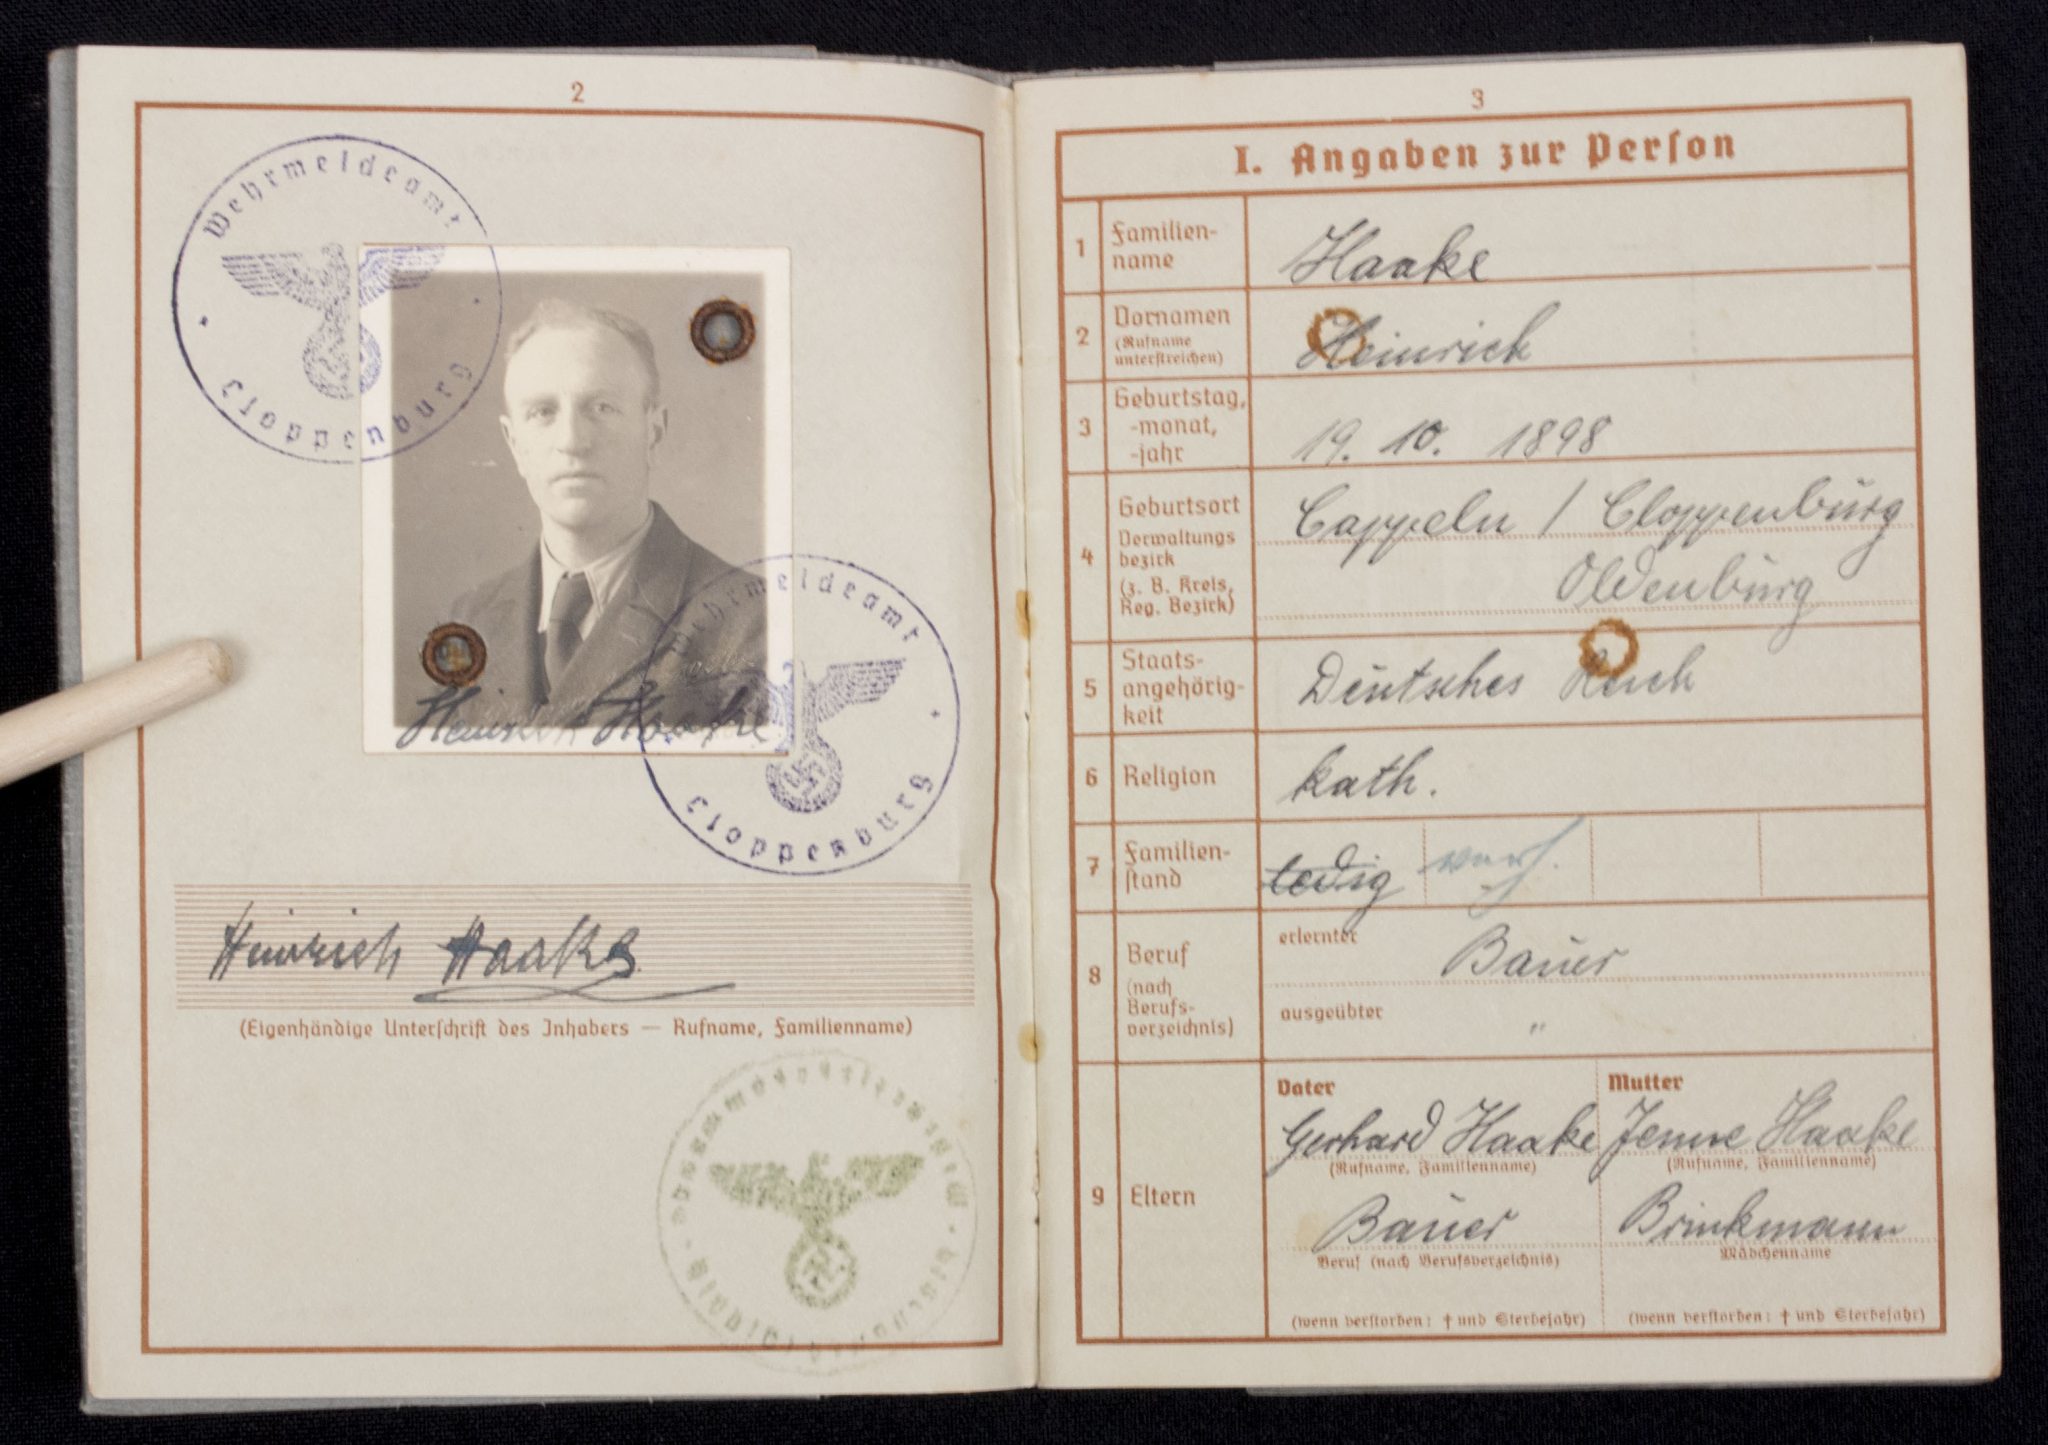 2
Wehrmeldeamt
Cloppenburg
Heinrich Haake
Wehrmeldeamt
Cloppenburg
Heinrich Haake
(Eigenhändige Unterschrift des Inhabers — Rufname, Familienname)
3
I. Angaben zur Person
1 Familien-
name
Haake
2 Vornamen
(Rufname
unterstreichen)
Heinrich
3 Geburtstag,
-monat,
-jahr
19. 10. 1898
4 Geburtsort
Verwaltungs
bezirk
(z. B. Kreis,
Reg. Bezirk)
Cappeln / Cloppenburg
Oldenburg
5 Staats-
angehörig-
keit
Deutsches Reich
6 Religion
kath.
7 Familien-
stand
ledig verh.
8 Beruf
(nach
Berufs-
verzeichnis)
erlernter
Bauer
ausgeübter
"
9 Eltern
Vater
Gerhard Haake
(Rufname, Familienname)
Bauer
Beruf (nach Berufsverzeichnis)
(wenn verstorben: † und Sterbejahr)
Mutter
Haake
(Rufname, Familienname)
Brinkmann
Mädchenname
(wenn verstorben: † und Sterbejahr)